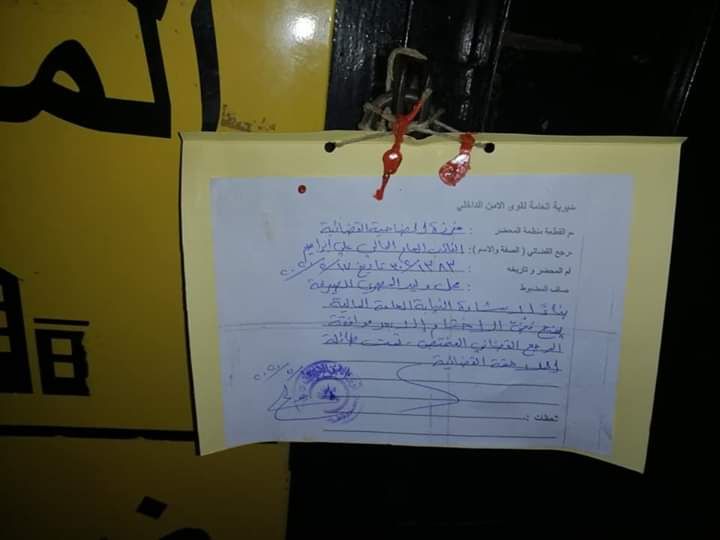 الم
مديرية العامة لقوى الامن الداخلي
م القطعة منظمة المحضر : مفرزة الضاحية القضائية
مرجع القضائي (الصفة والاسم) : النائب العام المالي علي ابراهيم
قم المحضر وتاريخه : ٣٠٢/١٣٨٣ تاريخ
صاف المضبوط : محل وليد للصيرفة
بناءً لاشارة النيابة العامة المالية
يمنع فض الاختام إلا بعد موافقة
المرجع القضائي المختص تحت طائلة
الملاحقة القضائية
حظات :